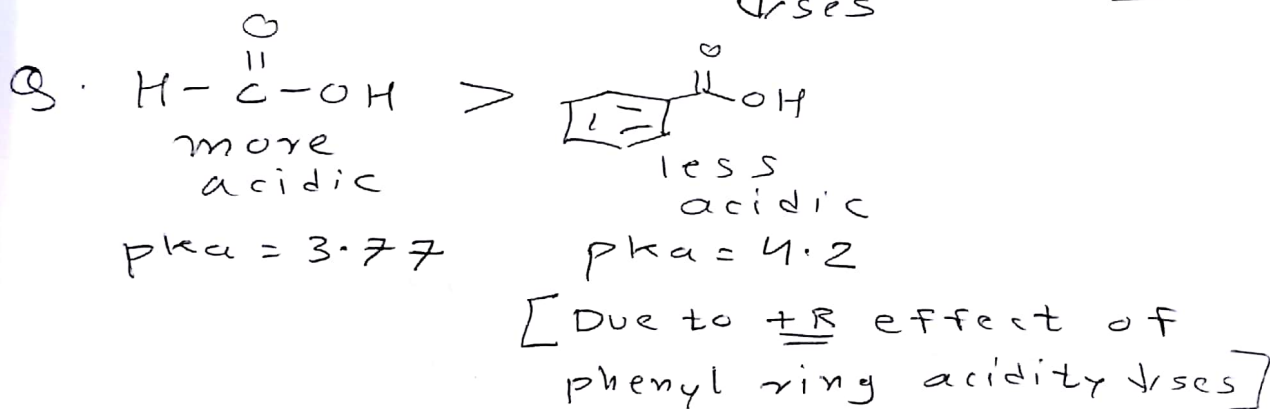 ↓ses
Q. H-C-OH > OH
O
||
O
more
acidic
less
acidic
pka = 3.77 pka = 4.2
[Due to +R effect of
phenyl ring acidity ↓ses]